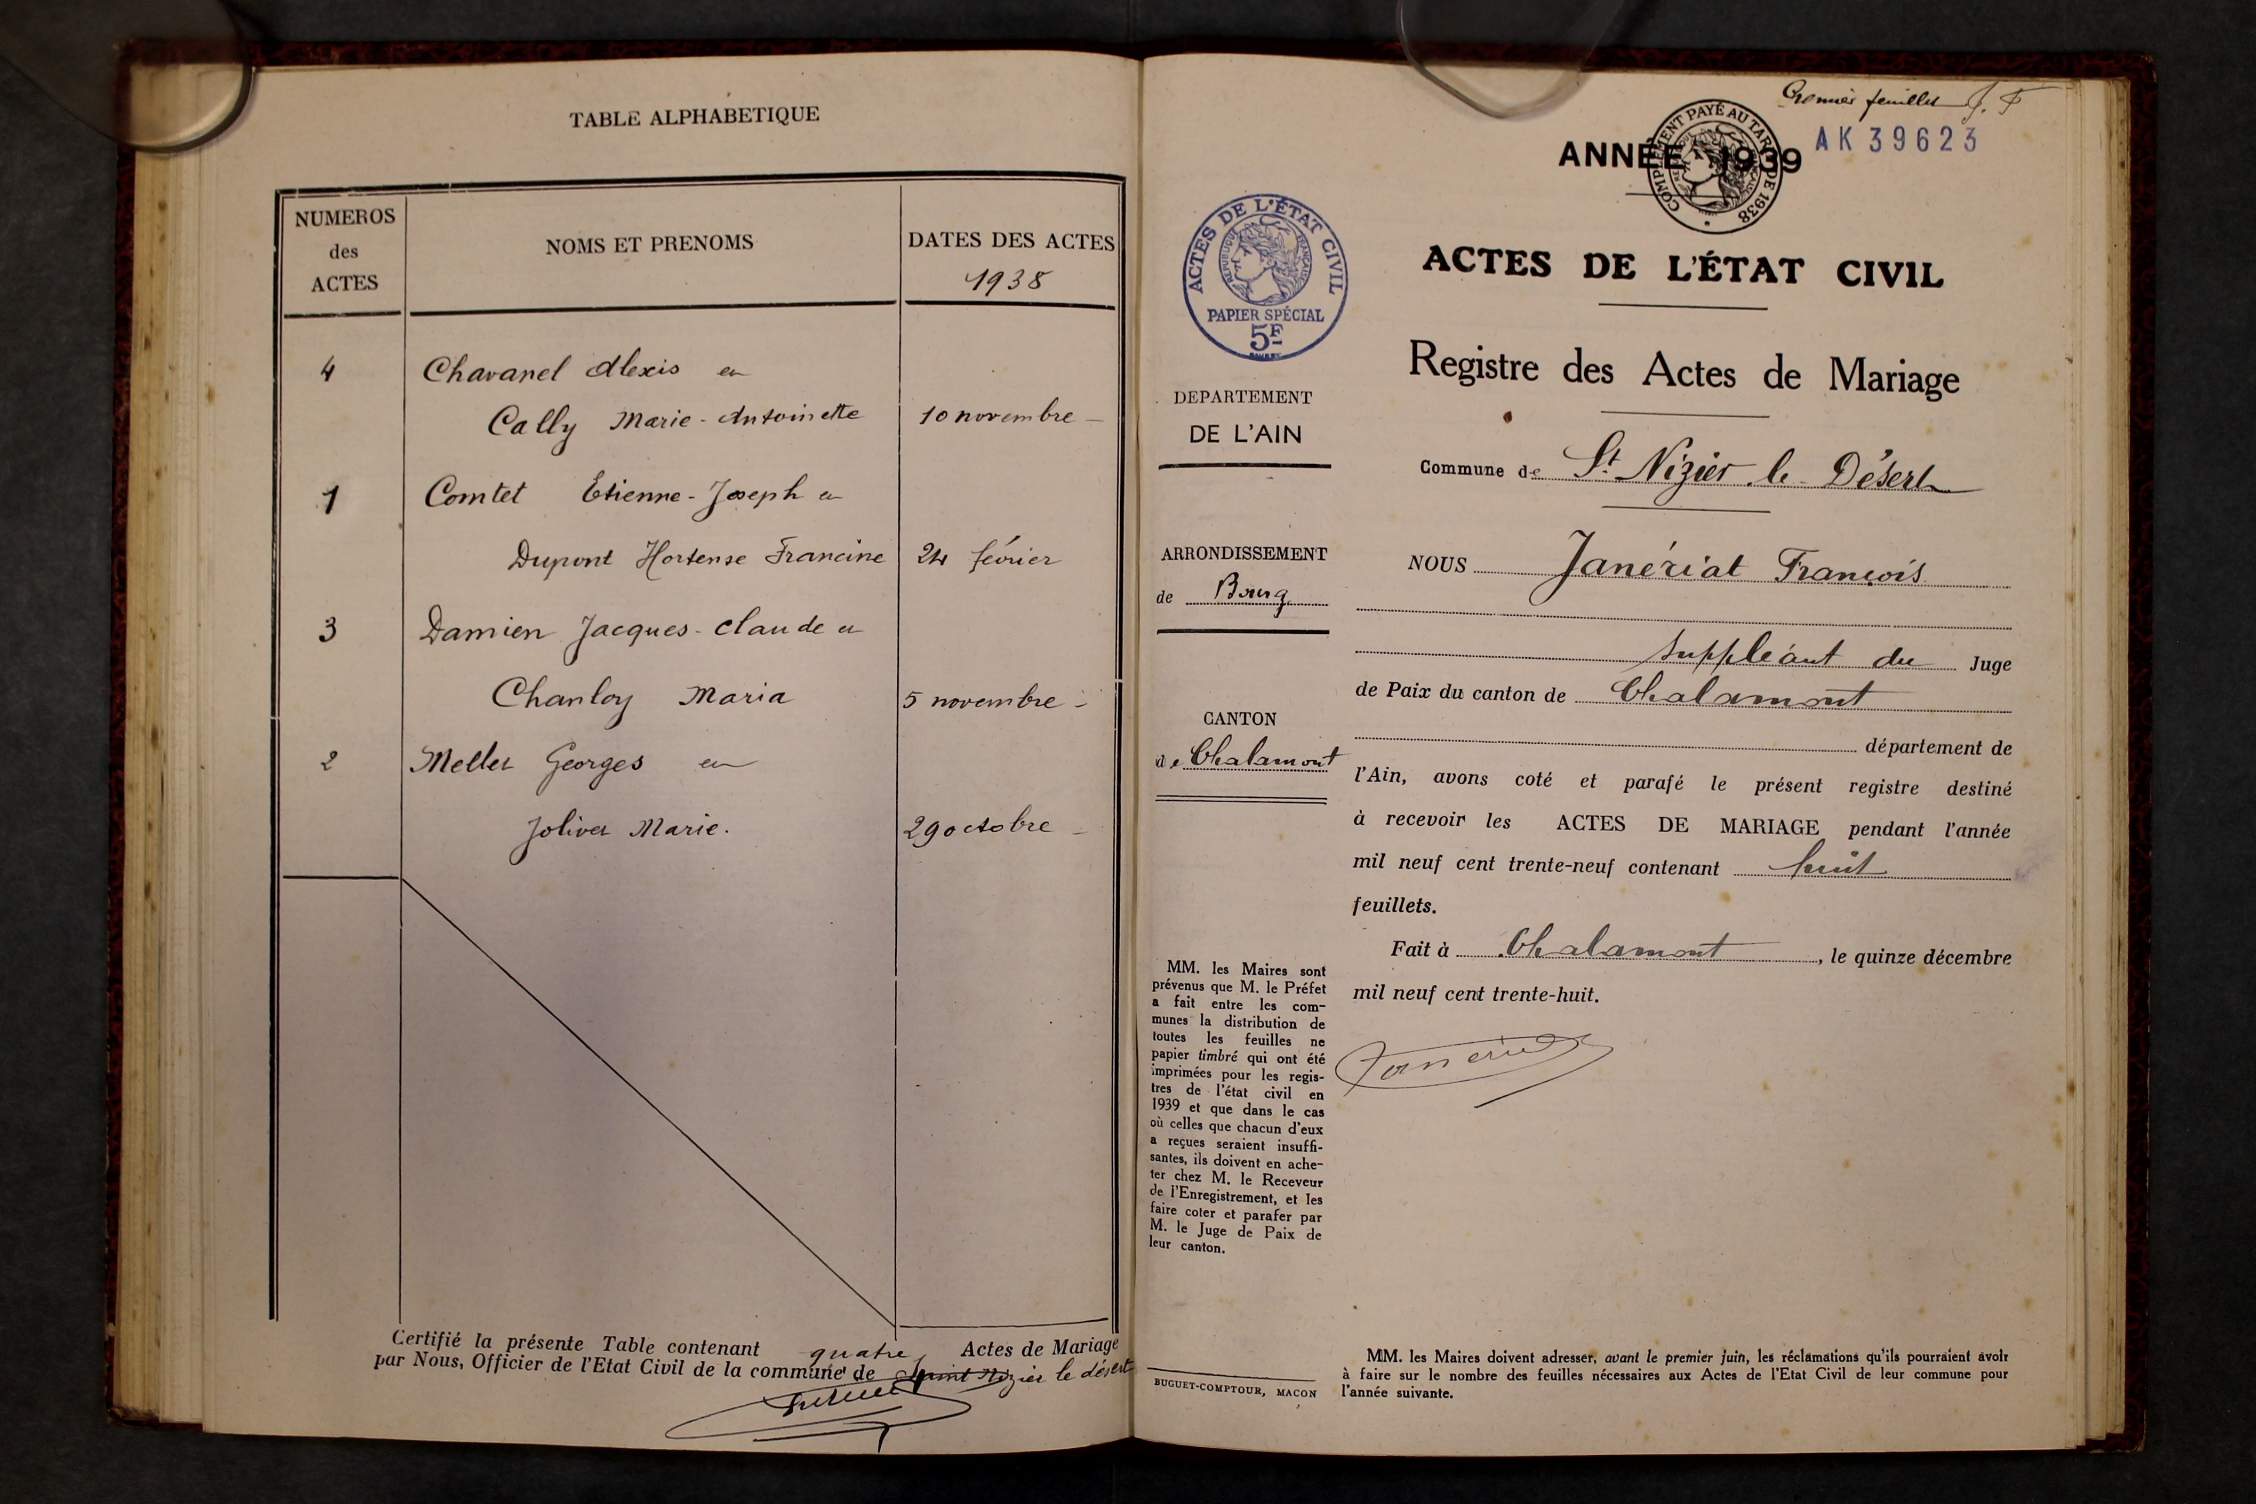 TABLE ALPHABETIQUE
NUMEROS
des
ACTES
NOMS ET PRENOMS
DATES DES ACTES
1938
4
Chavanel Alexis et
Cally Marie-Antoinette
10 novembre
1
Comtet Etienne-Joseph et
Dupont Hortense Francine
24 février
3
Damien Jacques-Claude et
Chanloy Maria
5 novembre
2
Meller Georges et
Jolivet Marie.
29 octobre
Certifié la présente Table contenant quatre Actes de Mariage
par Nous, Officier de l'Etat Civil de la commune de Saint Nizier le désert
Premier feuillet J. F
ANNÉE 1939
AK 39623
COMPLÉMENT PAYÉ AU TARIF DE 1938
ACTES DE L'ÉTAT CIVIL
RÉPUBLIQUE FRANÇAISE
PAPIER SPÉCIAL
5F
ACTES DE L'ÉTAT CIVIL
Registre des Actes de Mariage
Commune de St Nizier le Désert
DEPARTEMENT
DE L'AIN
ARRONDISSEMENT
de Bourg
CANTON
de Chalamont
MM. les Maires sont
prévenus que M. le Préfet
a fait entre les com-
munes la distribution de
toutes les feuilles ne
papier timbré qui ont été
imprimées pour les regis-
tres de l'état civil en
1939 et que dans le cas
où celles que chacun d'eux
a reçues seraient insuffi-
santes, ils doivent en ache-
ter chez M. le Receveur
de l'Enregistrement, et les
faire coter et parafer par
M. le Juge de Paix de
leur canton.
BUGUET-COMPTOUR, MACON
NOUS Janériat François
suppléant du Juge
de Paix du canton de Chalamont
département de
l'Ain, avons coté et parafé le présent registre destiné
à recevoir les ACTES DE MARIAGE pendant l'année
mil neuf cent trente-neuf contenant huit
feuillets.
Fait à Chalamont, le quinze décembre
mil neuf cent trente-huit.
Janériat
MM. les Maires doivent adresser, avant le premier juin, les réclamations qu'ils pourraient avoir
à faire sur le nombre des feuilles nécessaires aux Actes de l'Etat Civil de leur commune pour
l'année suivante.